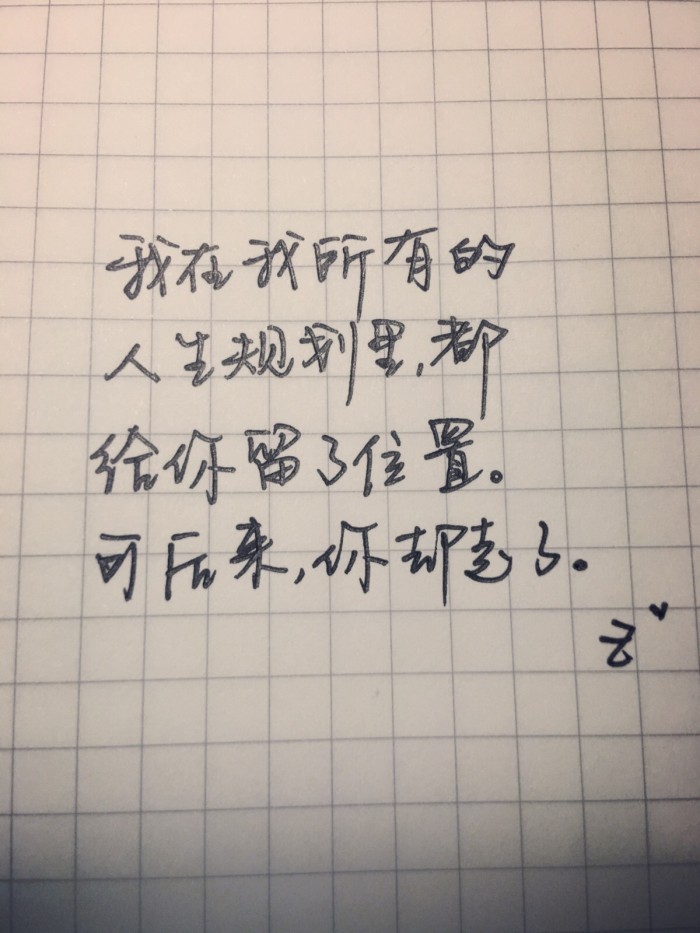 我在我所有的
人生规划里,都
给你留了位置。
可后来,你却走了。
Z